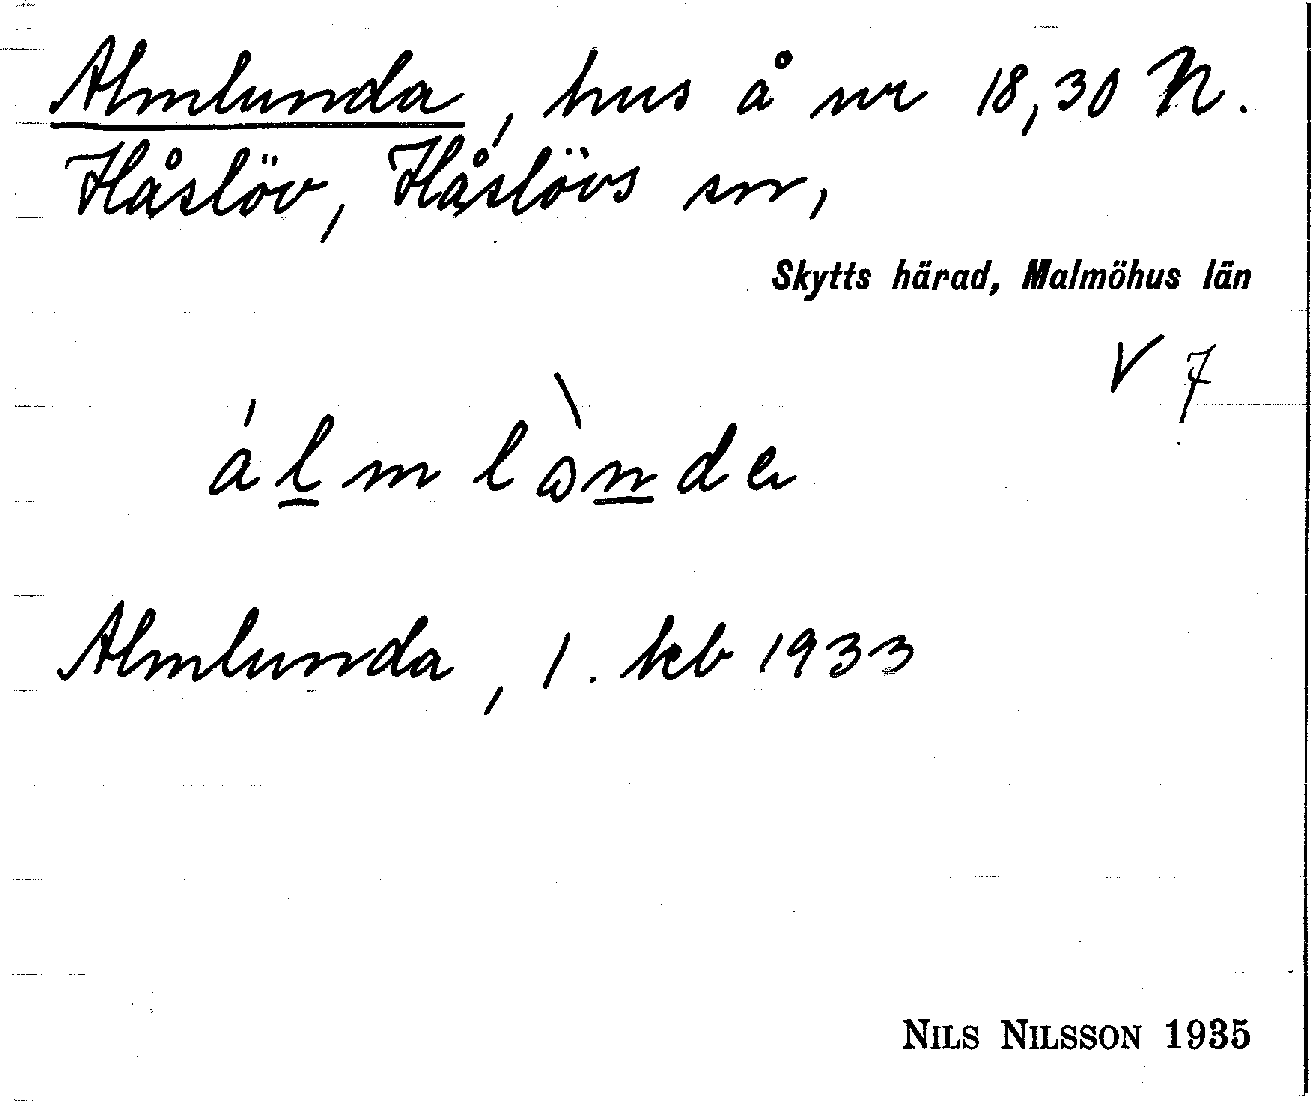 Almlunda, hus å nr 18,30 N.
Håslöv, Håslövs sn,
Skytts härad, Malmöhus län
V 7
Almlunda, 1. kb 1933
NILS NILSSON 1935